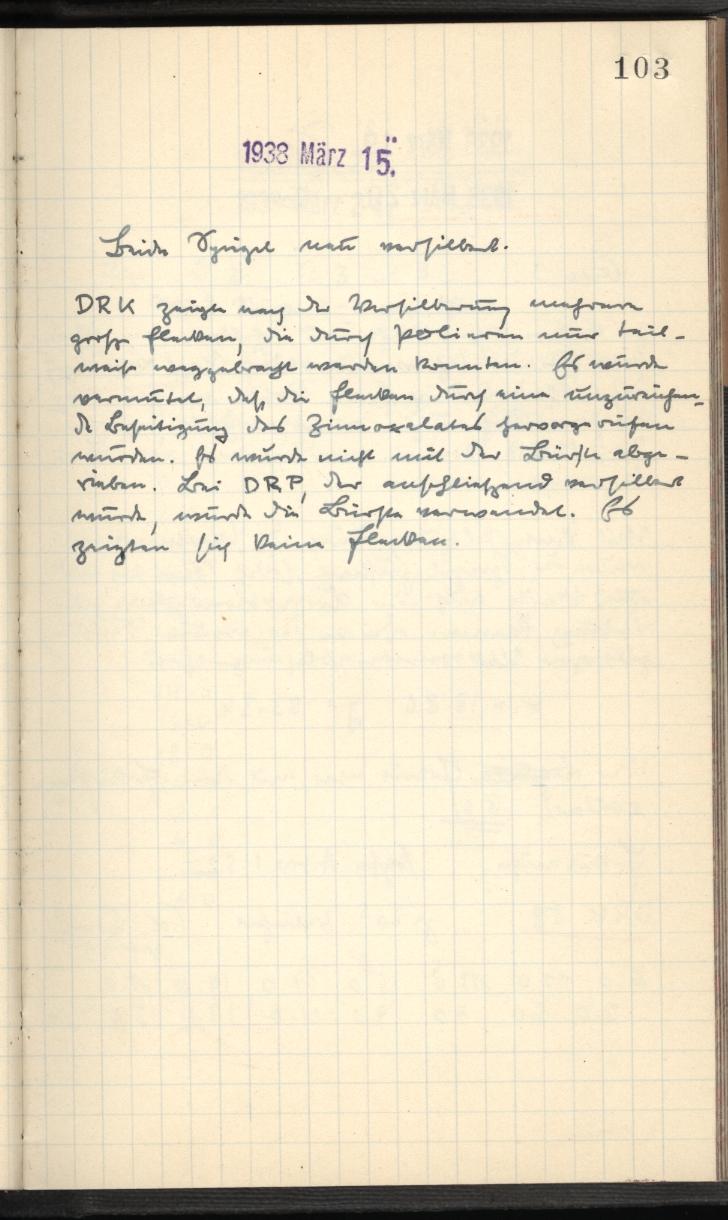 103
1938 März 15.
Beide Spiegel neu versilbert.
DRK zeigte nach der Versilberung mehrere
große Flecken, die durch Polieren nur teil-
weise weggebracht werden konnten. Es wurde
vermutet, daß die Flecken durch eine unzureichen-
de Beseitigung des Zinnoxalates hervorgerufen
wurden. Es wurde nicht mit der Bürste abge-
rieben. Bei DRP, der anschließend versilbert
wurde, wurde die Bürste verwendet. Es
zeigten sich keine Flecken.